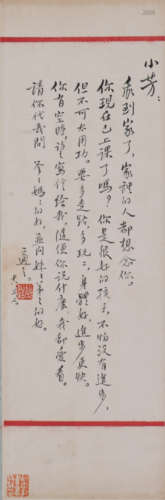 小芳：
我到家了，家裡的人都想念你。
你現在已上課了嗎？你是很好的孩子，不怕沒有進步，
但不可太用功。要多走路，多玩，身體好，進步更快。
你有空時，請寫信給我，隨便你說什麼，我都愛看。
請你代我問 爸爸媽媽的好，並問妹妹弟弟的好。
適之